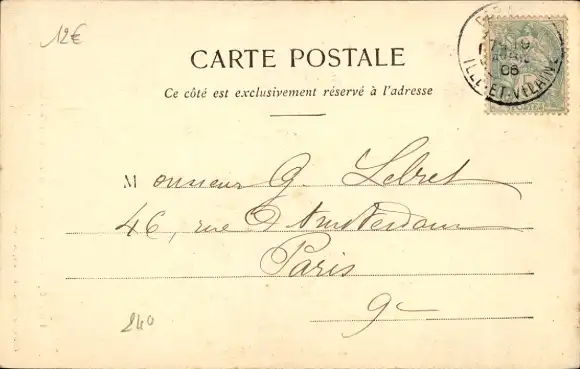 12€
CARTE POSTALE
Ce côté est exclusivement réservé à l'adresse
Monsieur G. Lebret
46, rue d'Amsterdam
Paris
9e
240
ILLE-ET-VILAINE